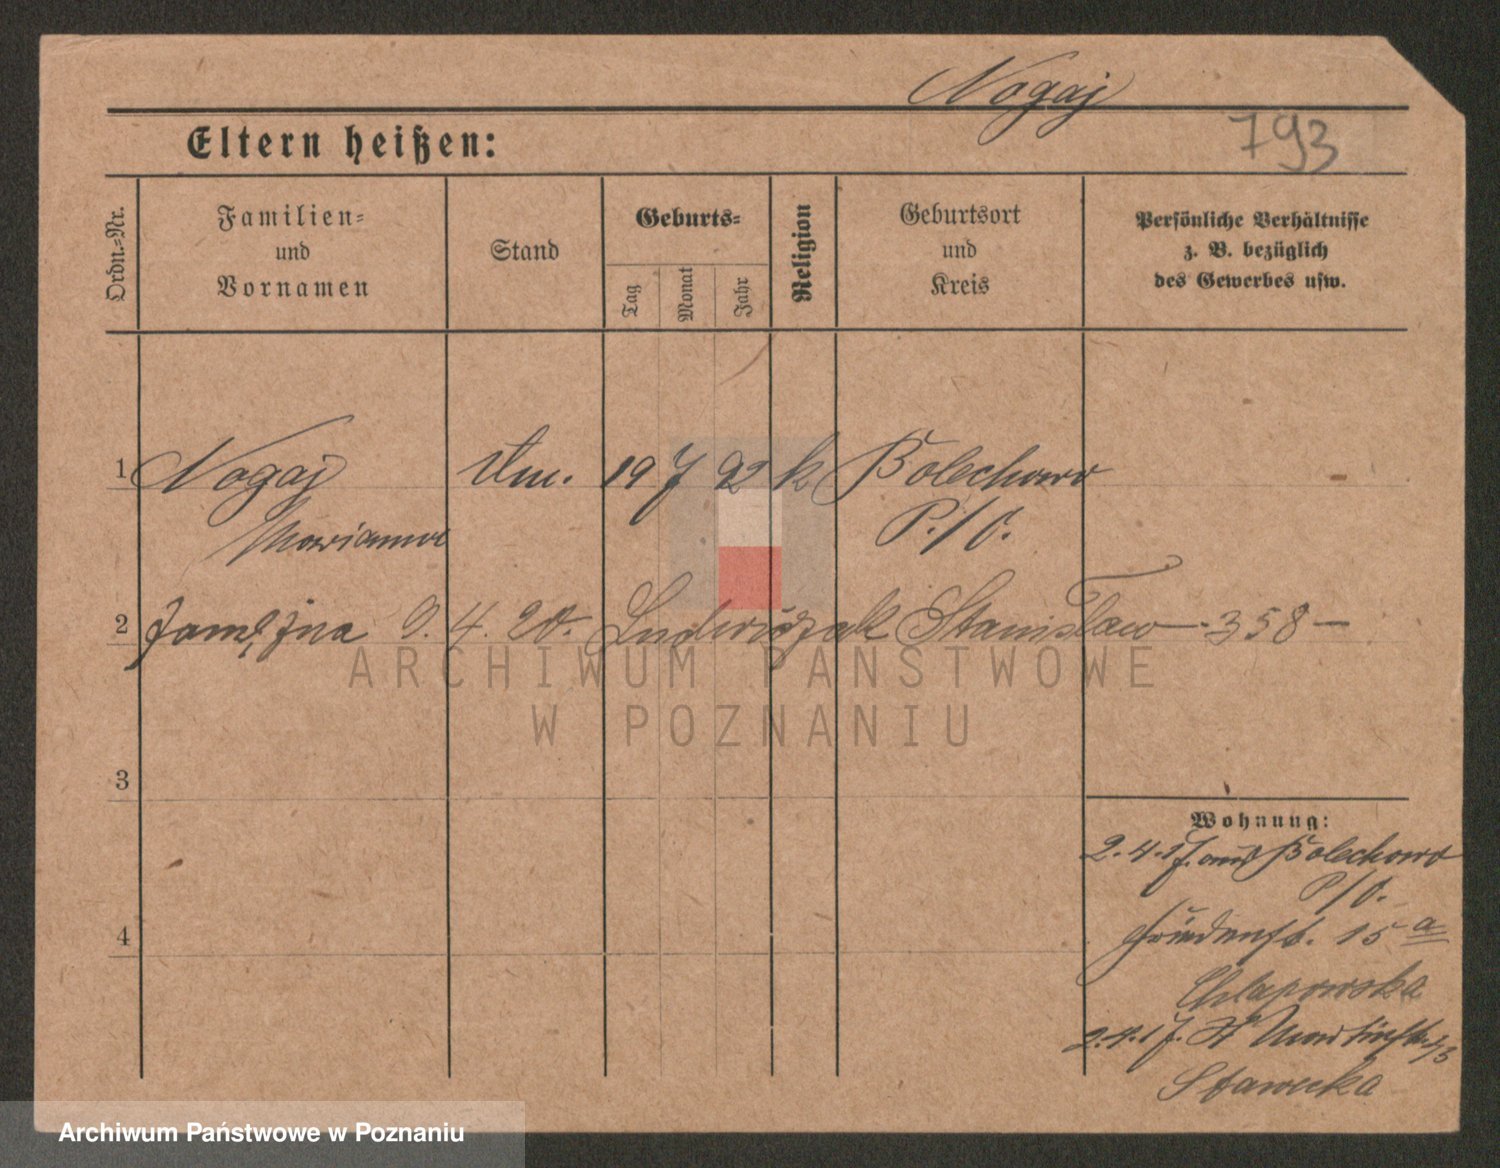 Nogaj
793
Eltern heißen:
Ordn.-Nr.
Familien-
und
Vornamen
Stand
Geburts-
Tag
Monat
Jahr
Religion
Geburtsort
und
Kreis
Persönliche Verhältnisse
z. B. bezüglich
des Gewerbes usw.
1 Nogaj 19 7 92 k Bolechowo
Marianna P./O.
2 zamężna 9. 4. 20. Ludwiczak Stanisław - 358 -
ARCHIWUM PAŃSTWOWE
W POZNANIU
3
Wohnung:
2.4.17. aus Bolechowo
P/O.
4
Friedenst. 15 a
Chlapowska
2.4.17. St Martinstr.
Stawecka
Archiwum Państwowe w Poznaniu